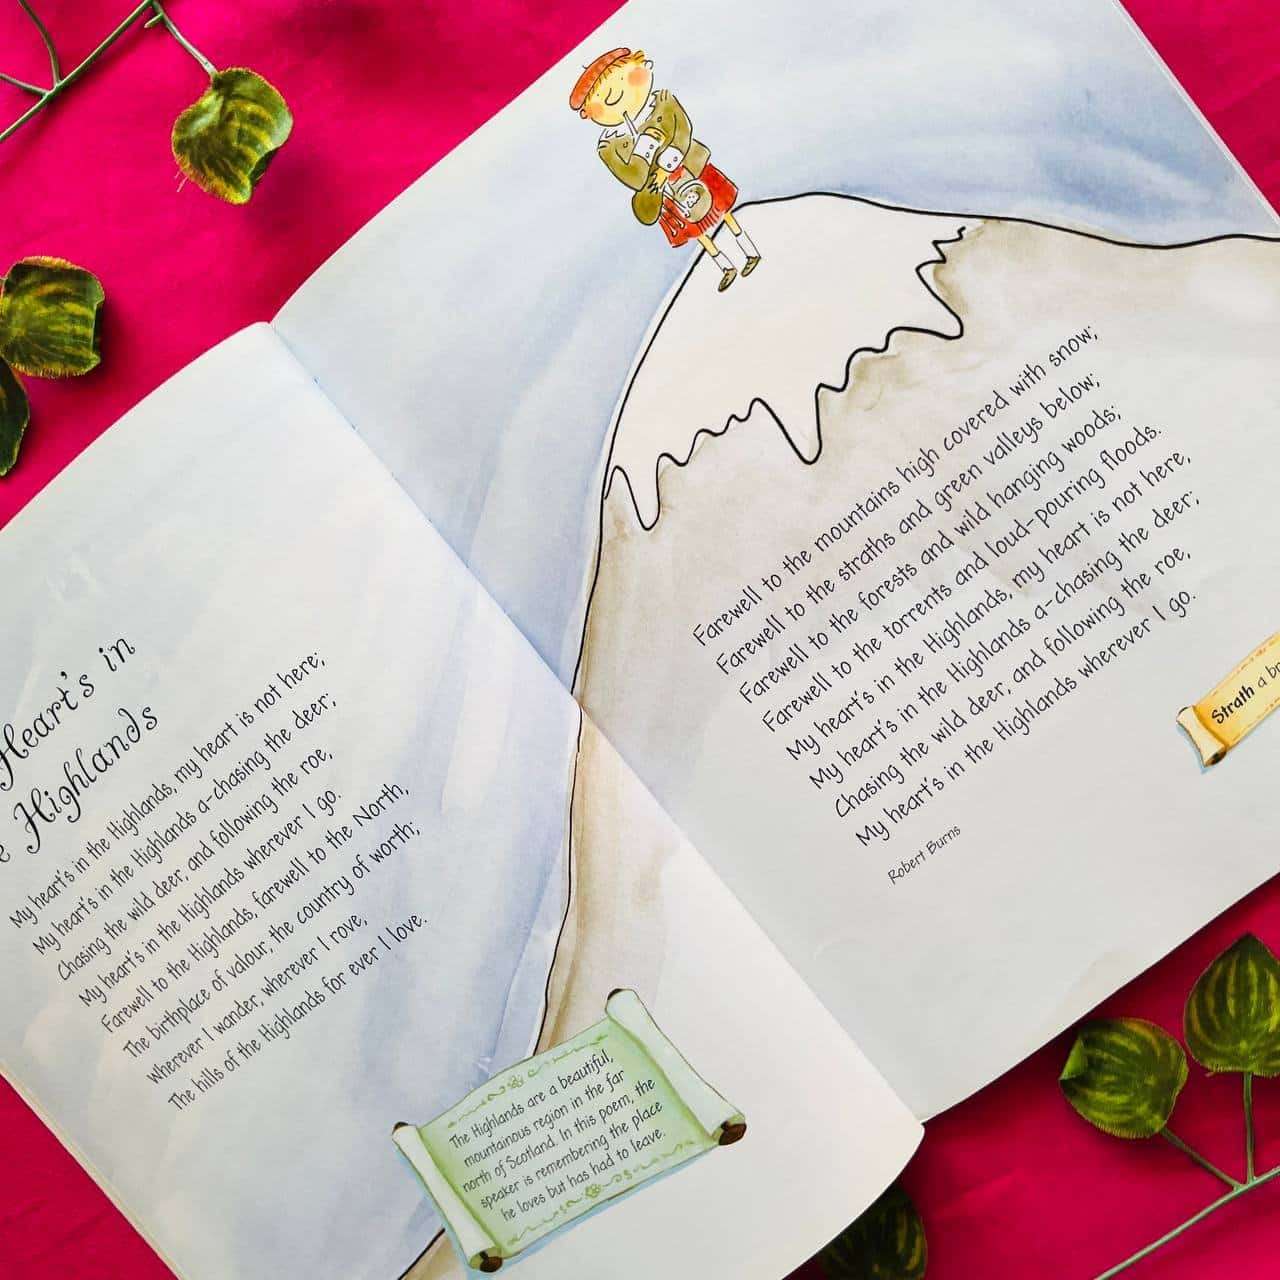 Heart's in
e Highlands
My heart's in the Highlands, my heart is not here;
My heart's in the Highlands a-chasing the deer;
Chasing the wild deer, and following the roe,
My heart's in the Highlands wherever I go.
Farewell to the Highlands, farewell to the North,
The birthplace of valour, the country of worth;
Wherever I wander, wherever I rove,
The hills of the Highlands for ever I love.
The Highlands are a beautiful,
mountainous region in the far
north of Scotland. In this poem, the
speaker is remembering the place
he loves but has had to leave.
Farewell to the mountains high covered with snow;
Farewell to the straths and green valleys below;
Farewell to the forests and wild hanging woods;
Farewell to the torrents and loud-pouring floods.
My heart's in the Highlands, my heart is not here,
My heart's in the Highlands a-chasing the deer;
Chasing the wild deer, and following the roe,
My heart's in the Highlands wherever I go.
Robert Burns
Strath a